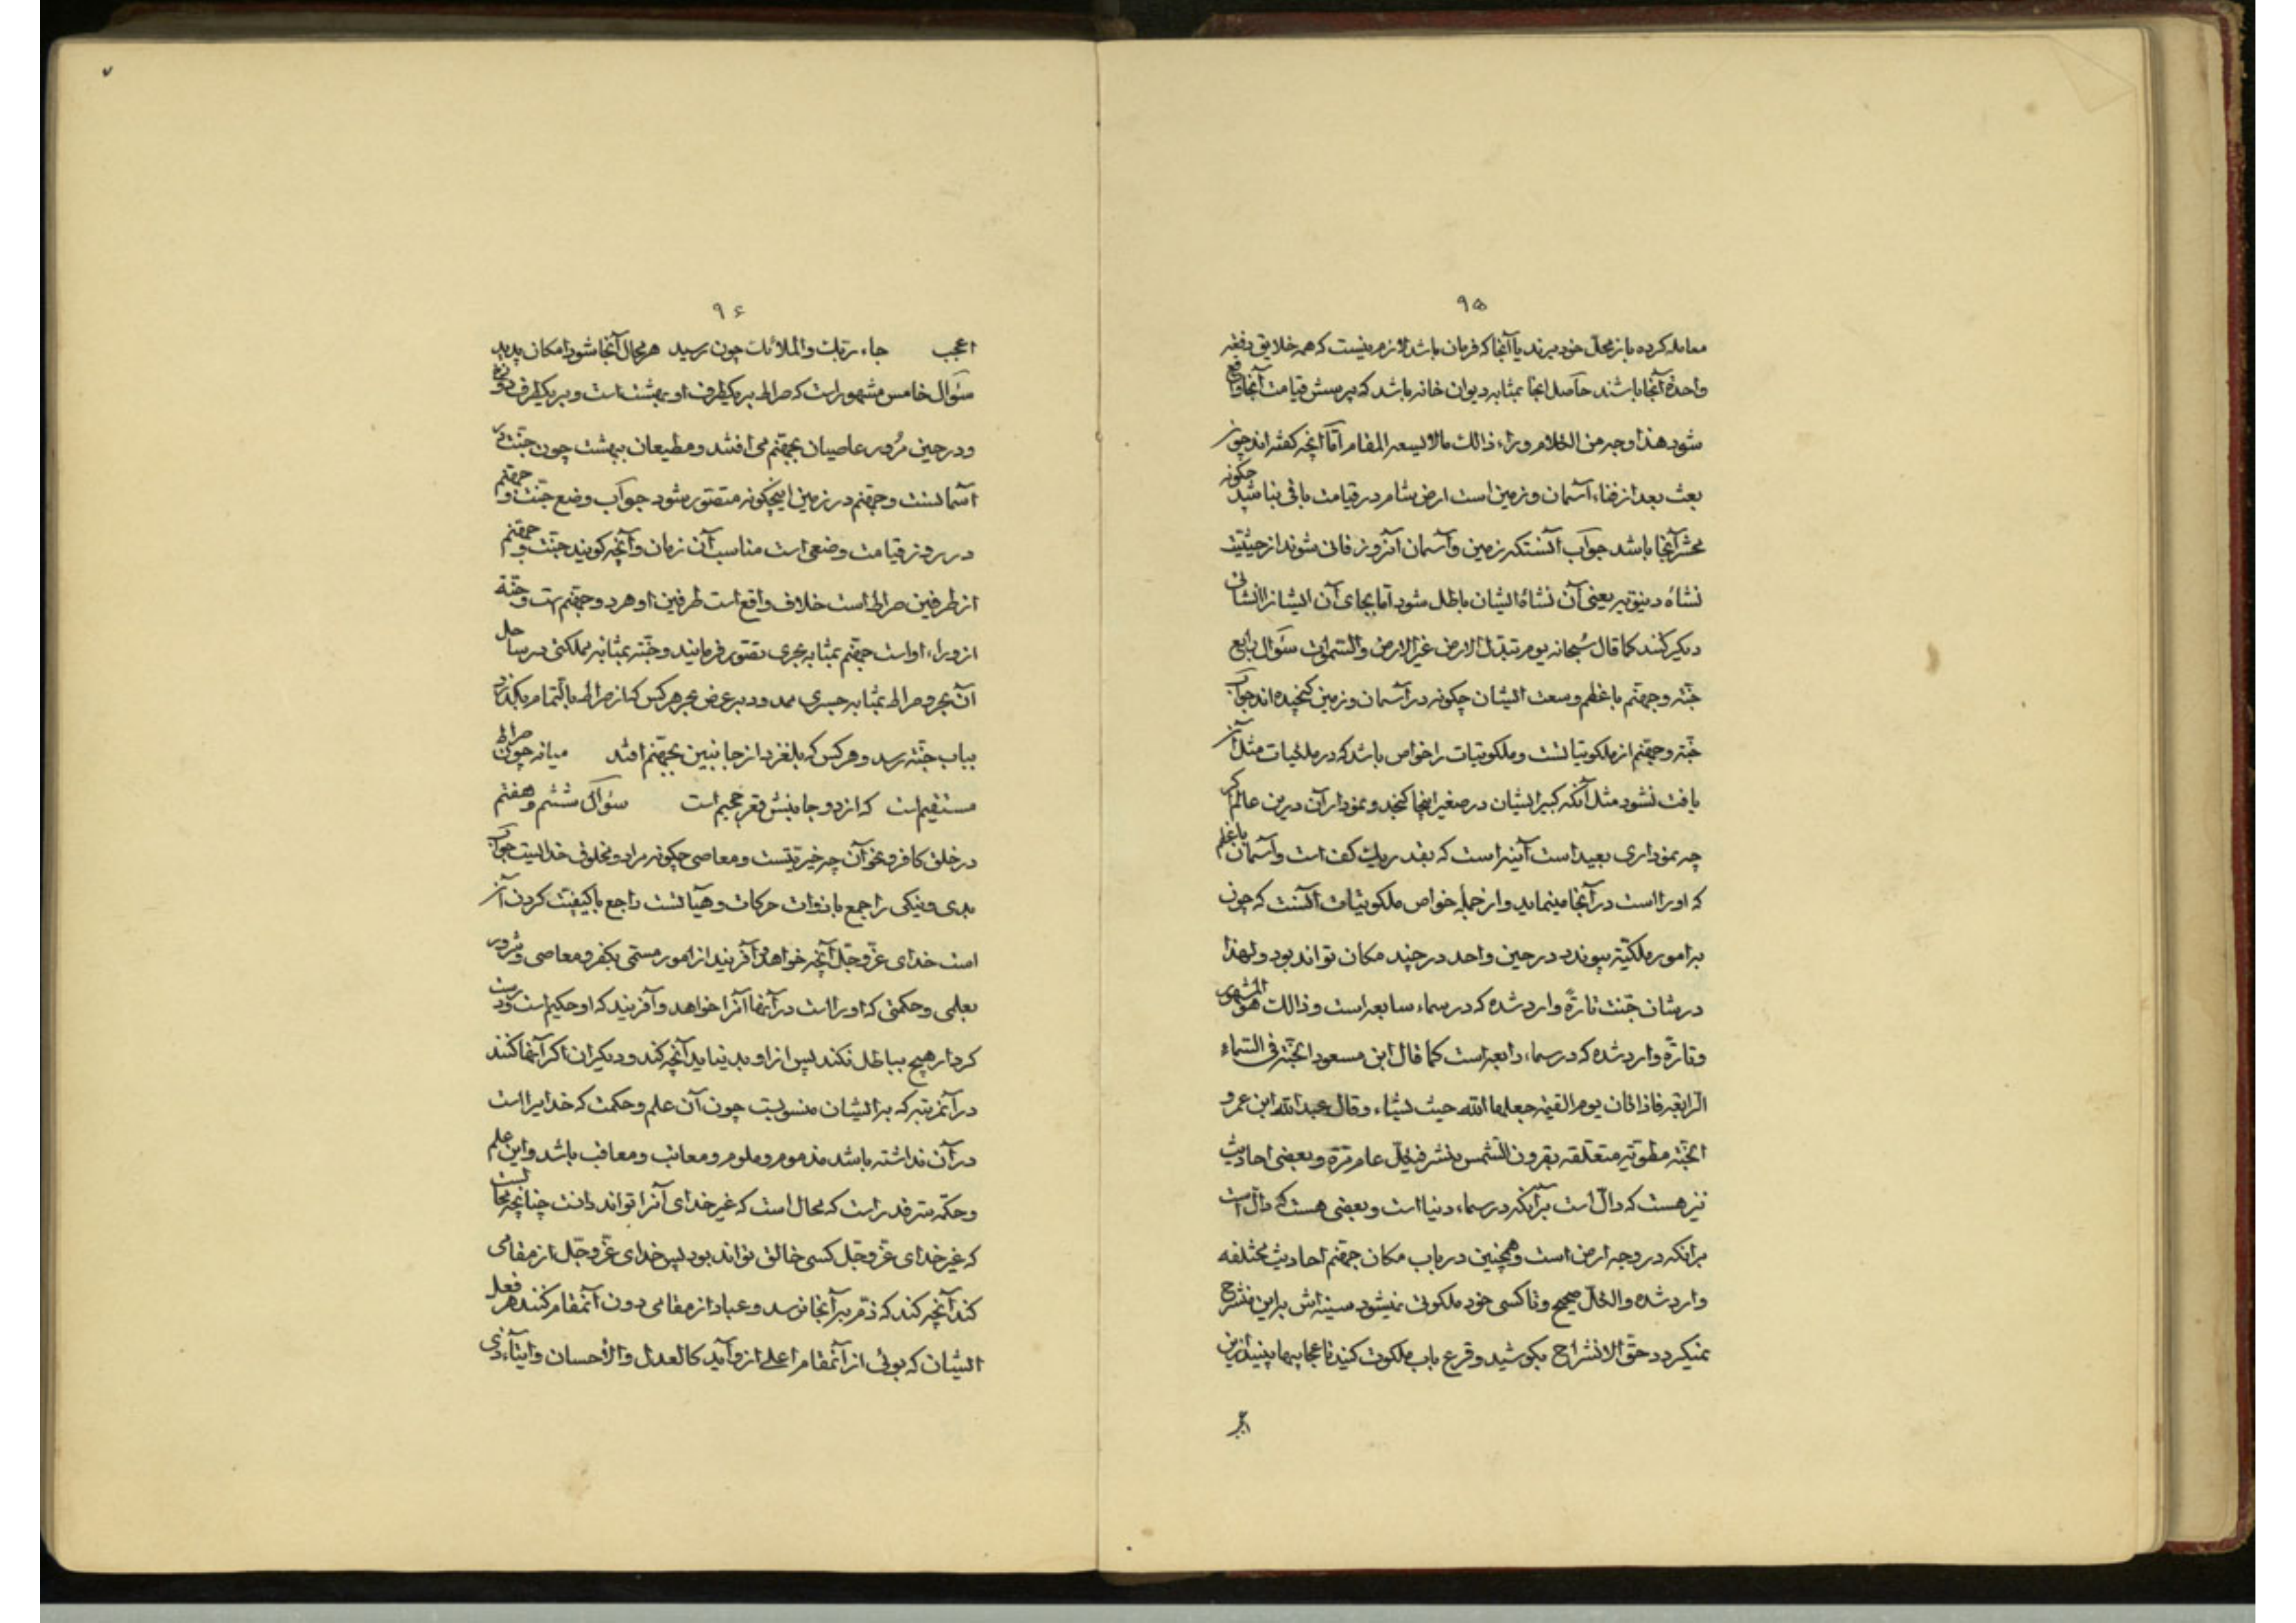 ۹۵
معامله کرده باز بمحل خود برند یا آنجا که فرمان باشد لازم نیست که همه خلایق دفعه
واحدة آنجا باشند حاصل اینجا بمثابه دیوان خانه باشد که پرسش قیامت آنجا واقع
شود هذا وجه من الکلام وراء ذالک مالا یسعه المقام اما آنچه گفته اند چون
بعث بعد از فناء آسمان و زمین است ارض شام در قیامت باقی نباشد چگونه
محشر آنجا باشد جواب آنستکه زمین و آسمان آنروز فانی شوند از حیثیت
نشاهٔ دنیویه یعنی آن نشاهٔ ایشان باطل شود اما بجای آن ایشانرا انشائی
دیگر کنند کما قال سبحانه یوم تبدل الارض غیر الارض والسموات سؤال رابع
جنّه و جهنّم با عظم وسعت ایشان چگونه در آسمان و زمین گنجیده اند جواب
جنّه و جهنم از ملکوتیاتست و ملکوتیات را خواص باشد که در ملکیات مثل آن
یافت نشود مثل آنکه کبیر ایشان در صغیر اینجا گنجد و نمودار آن درین عالم اگر
چه نموداری بعید است آینه است که بقدر یک کف است و آسمان با عظم
که او راست در آنجا مینماید و از جمله خواص ملکوتیات آنست که چون
بر امور ملکیّه پیوندد در حین واحد در چند مکان تواند بود و لهذا
در شان جنت تارةً وارد شده که در سماء سابعه است و ذالک هو المشهور
و تارةً وارد شده که در سماء رابعه است کما قال ابن مسعود الجنّة فی السماء
الرابعه فاذا کان یوم القیمة جعلها الله حیث یشاء و قال عبدالله ابن عمرو
الجنّه مطویّه متعلقه بقرون الشمس ینشر فی کلّ عام مرّة و بعضی احادیث
نیز هست که دالّ است برآنکه در سماء دنیا است و بعضی هست که دال است
برانکه در وجه ارض است و همچنین در باب مکان جهنم احادیث مختلفه
وارد شده و الکلّ صحیح و تا کسی خود ملکوتی نمیشود سینه اش براین منشرح
نمیگردد حقّ الانشراح بکوشید و قرع باب ملکوت کنید تا عجایبها بینید ازین
۹۶
اعجب جاء ربک والملائک چون رسید هر محال آنجا شود امکان پدید
سؤال خامس مشهور است که صراط بر یکطرف او بهشت است و بر یکطرف دوزخ
و در حین مُرور عاصیان بجهنم می افتند و مطیعان ببهشت چون جنّت در
آسمانست و جهنم در زمین این چگونه متصوّر شود جواب وضع جنّت و جهنم
در روز قیامت وضعی است مناسب آن زمان و آنچه گویند جنّت و جهنم
از طرفین صراط است خلاف واقع است طرفین او هر دو جهنم است و جنّة
از وراء او است جهنم بمثابه بحری تصوّر فرمایند و جنّه بمثابه مملکتی در ساحل
آن بحر و صراط بمثابه جسری ممدود بر عرض بحر هر کس که از صراط بالتمام بگذرد
بباب جنّه رسد و هر کس که بلغزد از جانبین بجهنم افتد میانه چون صراط
مستقیم است که از دو جانبش قعر جحیم است سؤال ششم و هفتم
در خلق کافر و نحو آن چه خیریتست و معاصی چگونه مراد و مخلوق خداست جواب
بدی و نیکی راجع با ذوات حرکات و هیآتست راجع با کیفیت کردن آن
است خدای عزّوجلّ آنچه خواهد و آفریند از امور مسمی بکفر و معاصی و شرور
بعلمی و حکمتی که او راست در آنها آنرا خواهد و آفریند که او حکیم است و درست
کردار هیچ بباطل نکند پس از او بد نیاید آنچه کند و دیگران اگر آنها کنند
در آنمرتبه که بر ایشان منسوبست چون آن علم و حکمت که خدایراست
در آن نداشته باشد مذموم و ملوم و معاتب و معاقب باشد و این علم
و حکمة سرّ قدر است که محال است که غیر خدای آنرا تواند دانست چنانچه محالست
که غیر خدای عزّوجل کسی خالق تواند بود پس خدای عزّوجل از مقامی
کند آنچه کند که ذم بر آنجا نرسد و عباد از مقامی دون آنمقام کنند هر فعل
ایشان که بوئی از آنمقام اعلی از و آید کالعدل والاحسان وایتاء ذی